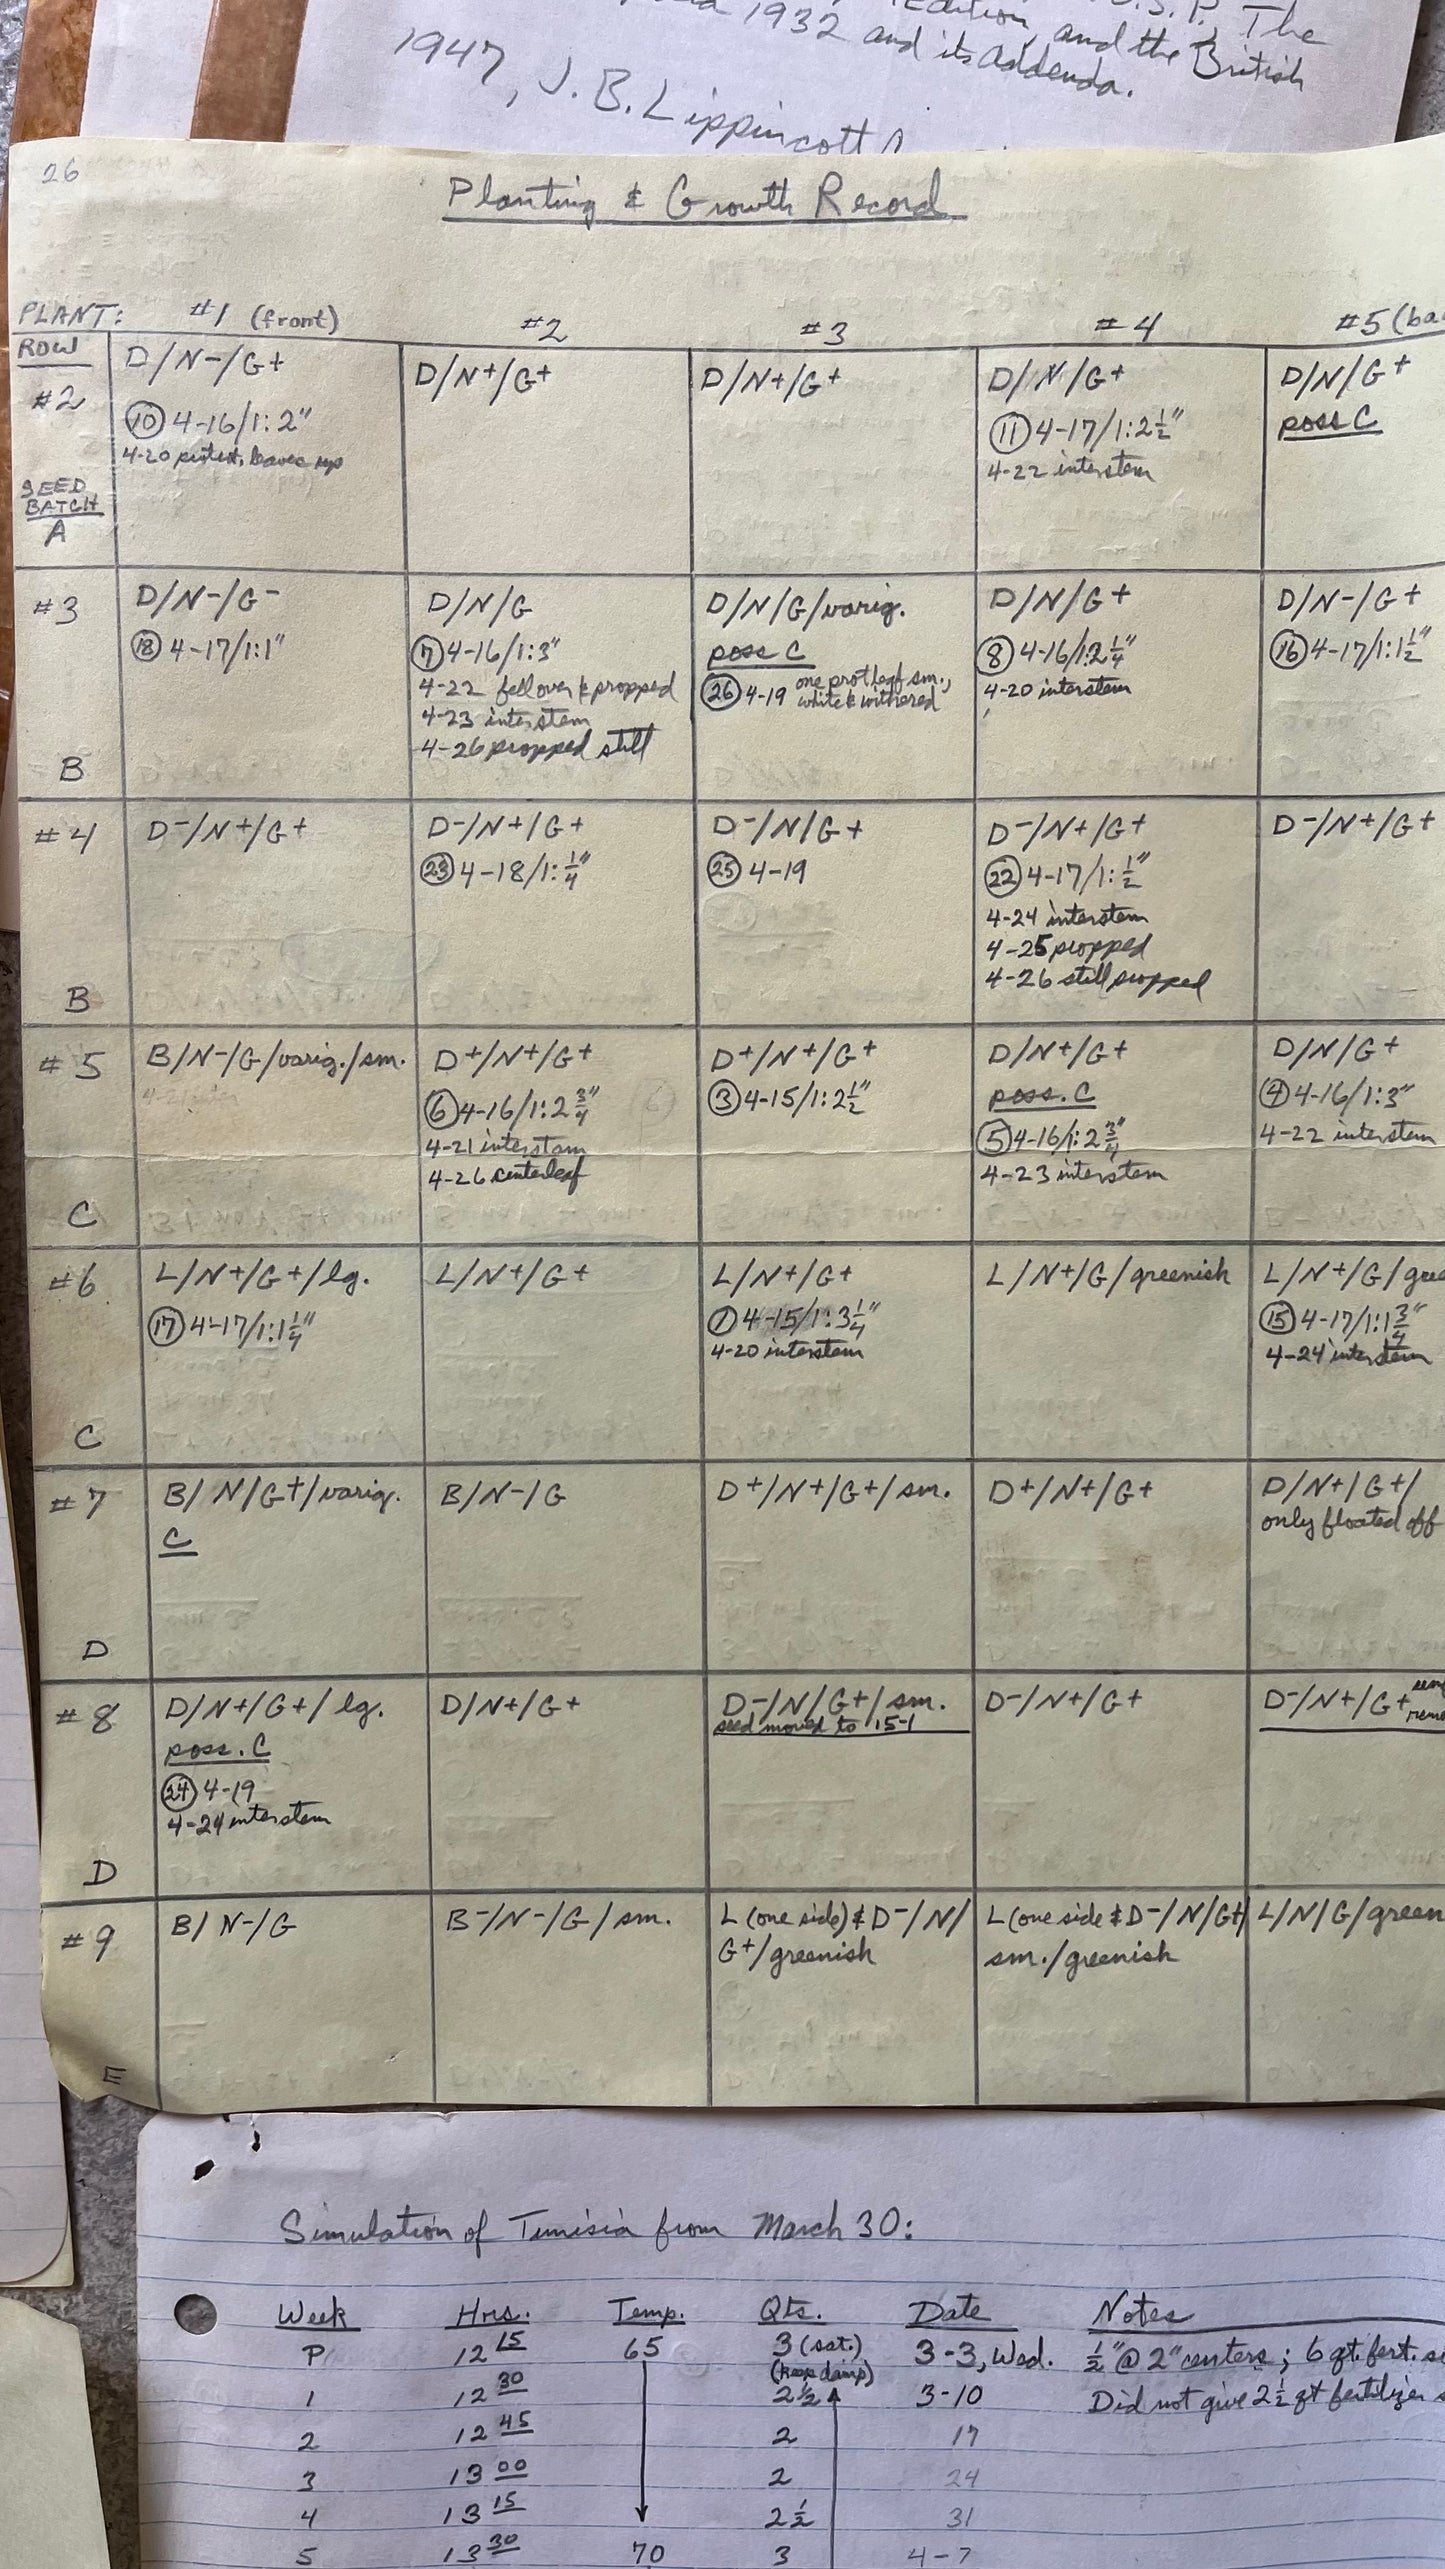 1932 and its addenda.
Edition, and the British
U.S.P., The
1947, J.B. Lippincott
26
Planting & Growth Record
PLANT: #1 (front) #2 #3 #4 #5 (ba
ROW
#2
SEED
BATCH
A
D/N-/G+
⑩ 4-16/1:2"
4-20 leaves up
D/N+/G+
D/N+/G+
D/N/G+
⑪ 4-17/1:2½"
4-22 interstem
D/N/G+
poss C
#3
B
D/N-/G-
⑱ 4-17/1:1"
D/N/G
⑦ 4-16/1:3"
4-22 fell over & propped
4-23 interstem
4-26 propped still
D/N/G/varig.
poss C
㉖ 4-19 one prot leaf sm.,
white & withered
D/N/G+
⑧ 4-16/1:2¼"
4-20 interstem
D/N-/G+
⑯ 4-17/1:1½"
#4
B
D-/N+/G+
D-/N+/G+
㉓ 4-18/1:¼"
D-/N/G+
㉕ 4-19
D-/N+/G+
㉒ 4-17/1:½"
4-24 interstem
4-25 propped
4-26 still propped
D-/N+/G+
#5
C
B/N-/G/varig./sm.
D+/N+/G+
⑥ 4-16/1:2¾"
4-21 interstem
4-26 centerleaf
D+/N+/G+
③ 4-15/1:2½"
D/N+/G+
poss. C
⑤ 4-16/1:2¾"
4-23 interstem
D/N/G+
④ 4-16/1:3"
4-22 interstem
#6
C
L/N+/G+/lg.
⑰ 4-17/1:1¼"
L/N+/G+
L/N+/G+
① 4-15/1:3¼"
4-20 interstem
L/N+/G/greenish
L/N+/G/gree
⑮ 4-17/1:1¾"
4-24 interstem
#7
D
B/N/G+/varig.
C
B/N-/G
D+/N+/G+/sm.
D+/N+/G+
D/N+/G+/
only floated off
#8
D
D/N+/G+/lg.
poss. C
㉔ 4-19
4-24 interstem
D/N+/G+
D-/N/G+/sm.
seed moved to 15-1
D-/N+/G+
D-/N+/G+
#9
E
B/N-/G
B-/N-/G/sm.
L (one side) & D-/N/
G+/greenish
L (one side & D-/N/G+/
sm./greenish
L/N/G/green
Simulation of Tunisia from March 30:
Week Hrs. Temp. Qts. Date Notes
P 12 15 65 3 (sat.) 3-3, Wed. ½" @ 2" centers; 6 qt. fert. s
(keep damp)
1 12 30 2½ 3-10 Did not give 2½ qt fertilizer s
2 12 45 2 17
3 13 00 2 24
4 13 15 2½ 31
5 13 30 70 3 4-7